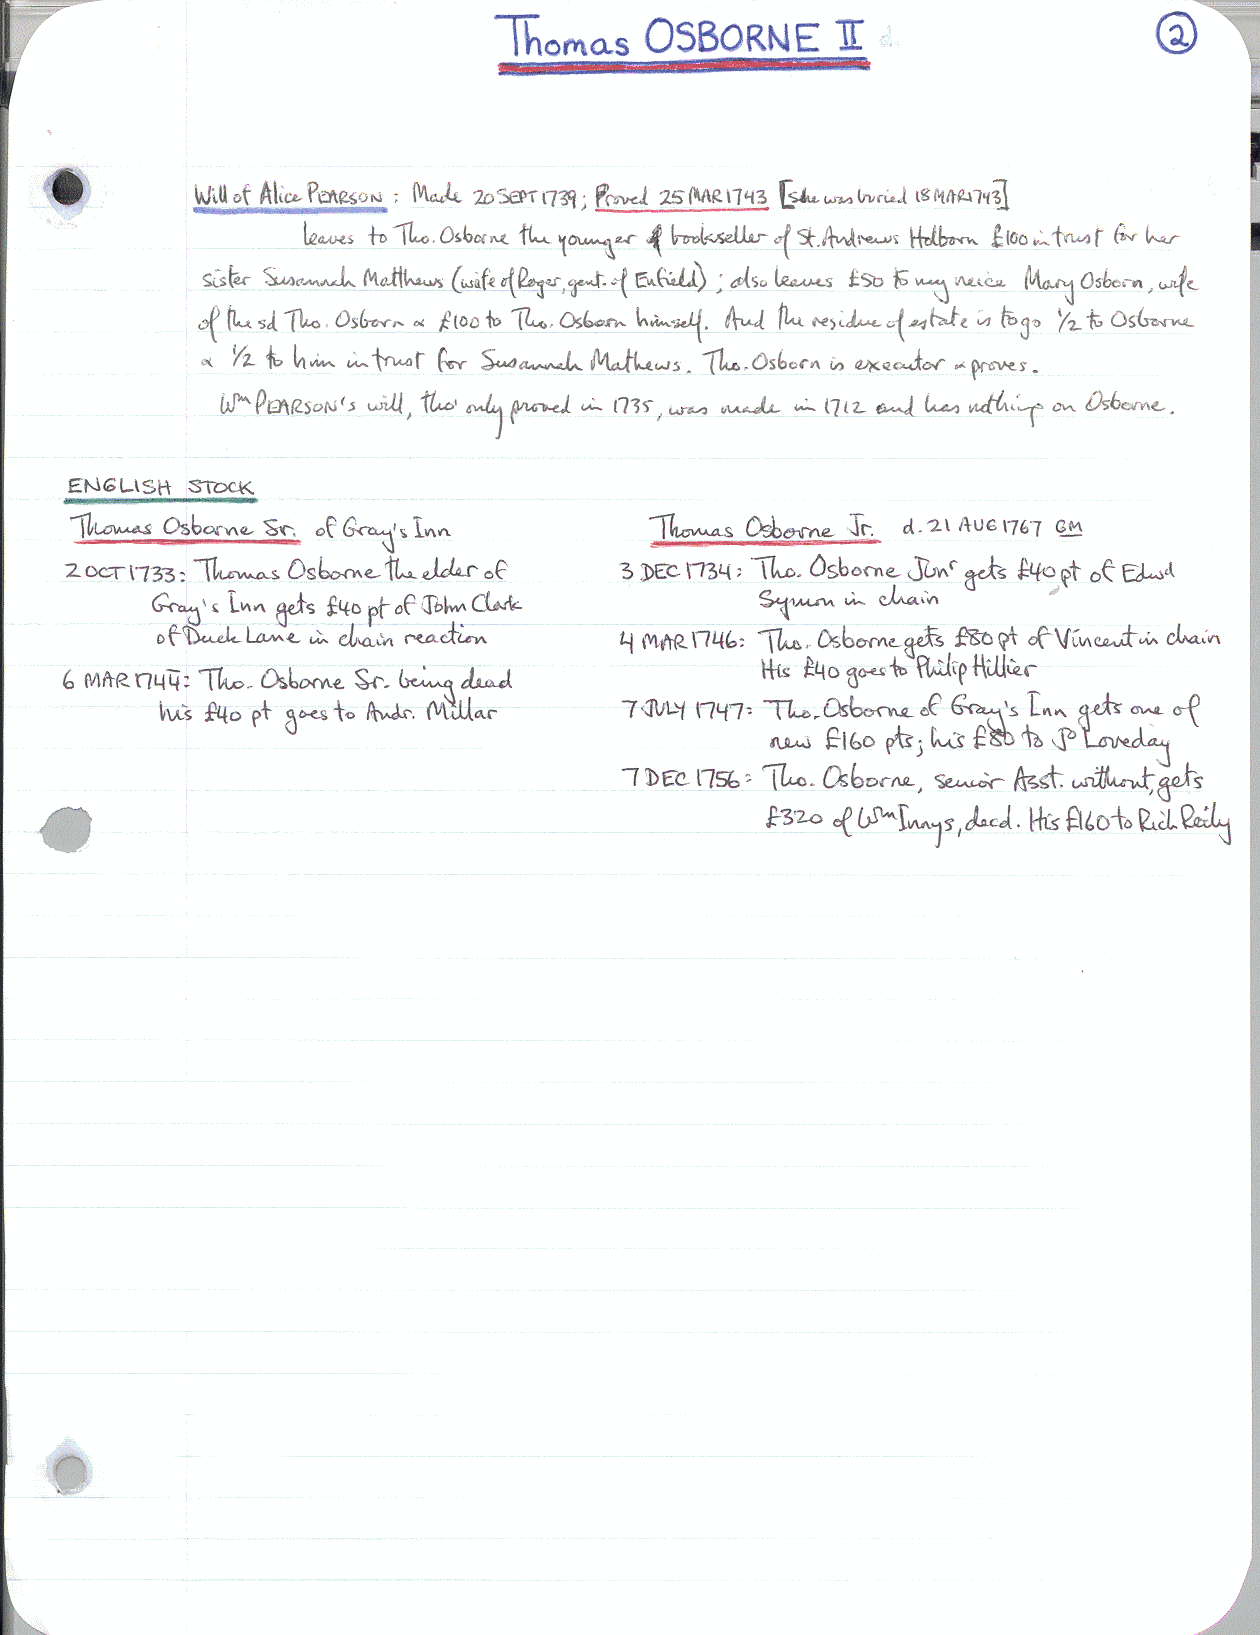 Thomas OSBORNE II d.
2
Will of Alice PEARSON : Made 20 SEPT 1739; Proved 25 MAR 1743 [she was buried 18 MAR 1743]
leaves to Tho. Osborne the younger bookseller of St. Andrews Holborn £100 in trust for her
sister Susannah Matthews (wife of Roger, gent. of Enfield) ; also leaves £50 to my neice Mary Osborn, wife
of the sd Tho. Osborn & £100 to Tho. Osborn himself. And the residue of estate is to go 1/2 to Osborne
& 1/2 to him in trust for Susannah Mathews. Tho. Osborn is executor & proves.
Wm PEARSON's will, tho' only proved in 1735, was made in 1712 and has nothing on Osborne.
ENGLISH STOCK
Thomas Osborne Sr. of Gray's Inn
2 OCT 1733: Thomas Osborne the elder of
Gray's Inn gets £40 pt of John Clark
of Duck Lane in chain reaction
6 MAR 1744: Tho. Osborne Sr. being dead
his £40 pt goes to Andr. Millar
Thomas Osborne Jr. d. 21 AUG 1767 GM
3 DEC 1734: Tho. Osborne Junr gets £40 pt of Edwd
Symon in chain
4 MAR 1746: Tho. Osborne gets £80 pt of Vincent in chain
His £40 goes to Philip Hillier
7 JULY 1747: Tho. Osborne of Gray's Inn gets one of
new £160 pts; his £80 to Jo Loveday
7 DEC 1756: Tho. Osborne, senior Asst. without, gets
£320 of Wm Innys, decd. His £160 to Rich Reily